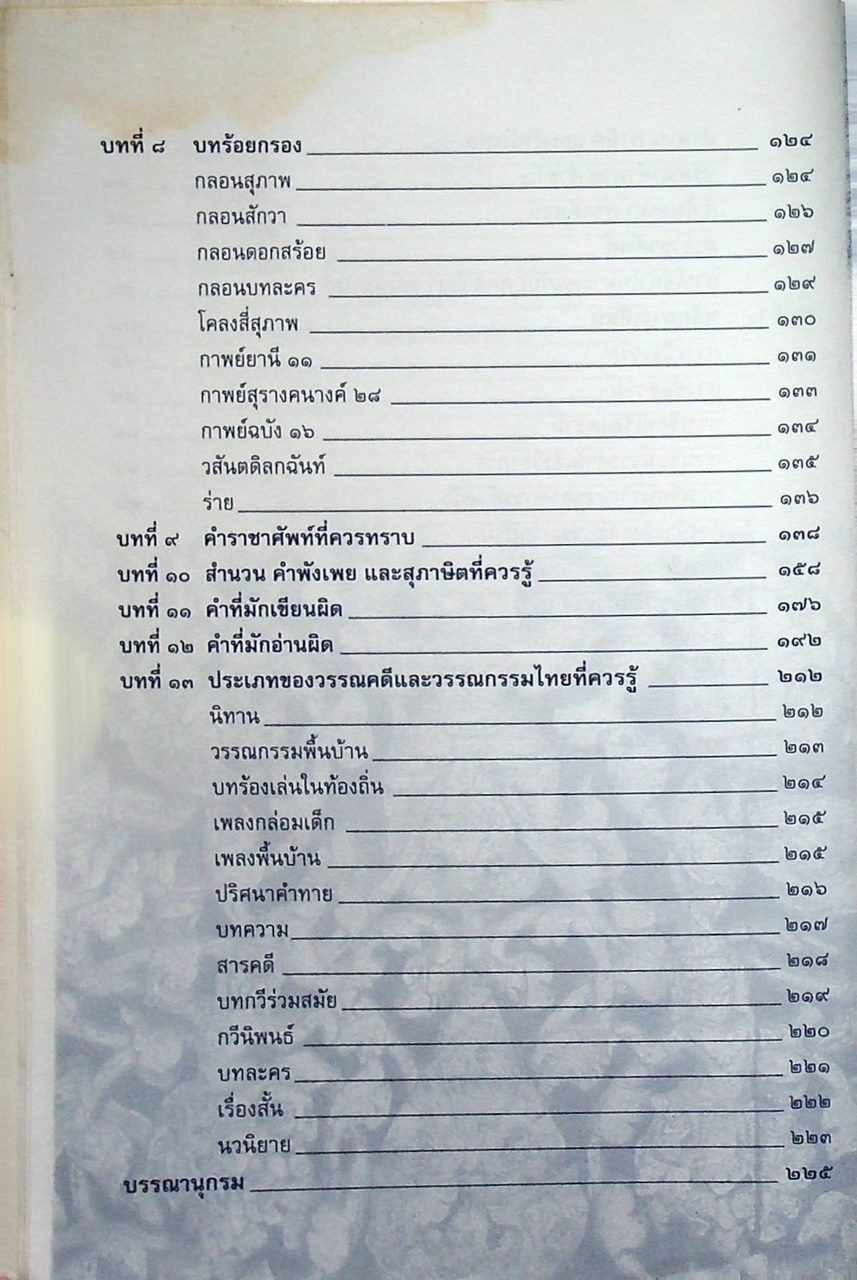 บทที่ ๘ บทร้อยกรอง ๑๒๔
กลอนสุภาพ ๑๒๔
กลอนสักวา ๑๒๖
กลอนดอกสร้อย ๑๒๗
กลอนบทละคร ๑๒๙
โคลงสี่สุภาพ ๑๓๐
กาพย์ยานี ๑๑ ๑๓๑
กาพย์สุรางคนางค์ ๒๘ ๑๓๓
กาพย์ฉบัง ๑๖ ๑๓๔
วสันตดิลกฉันท์ ๑๓๕
ร่าย ๑๓๖
บทที่ ๙ คำราชาศัพท์ที่ควรทราบ ๑๓๘
บทที่ ๑๐ สำนวน คำพังเพย และสุภาษิตที่ควรรู้ ๑๕๘
บทที่ ๑๑ คำที่มักเขียนผิด ๑๗๖
บทที่ ๑๒ คำที่มักอ่านผิด ๑๙๒
บทที่ ๑๓ ประเภทของวรรณคดีและวรรณกรรมไทยที่ควรรู้ ๒๑๒
นิทาน ๒๑๒
วรรณกรรมพื้นบ้าน ๒๑๓
บทร้องเล่นในท้องถิ่น ๒๑๔
เพลงกล่อมเด็ก ๒๑๕
เพลงพื้นบ้าน ๒๑๕
ปริศนาคำทาย ๒๑๖
บทความ ๒๑๗
สารคดี ๒๑๘
บทกวีร่วมสมัย ๒๑๙
กวีนิพนธ์ ๒๒๐
บทละคร ๒๒๑
เรื่องสั้น ๒๒๒
นวนิยาย ๒๒๓
บรรณานุกรม ๒๒๕